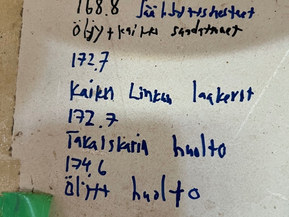 168.8
Öljyt kaikki suodattimet
172.7
Kaikki Linkun laakerit
172.7
Takaiskarin huolto
174.6
Öljyt huolto